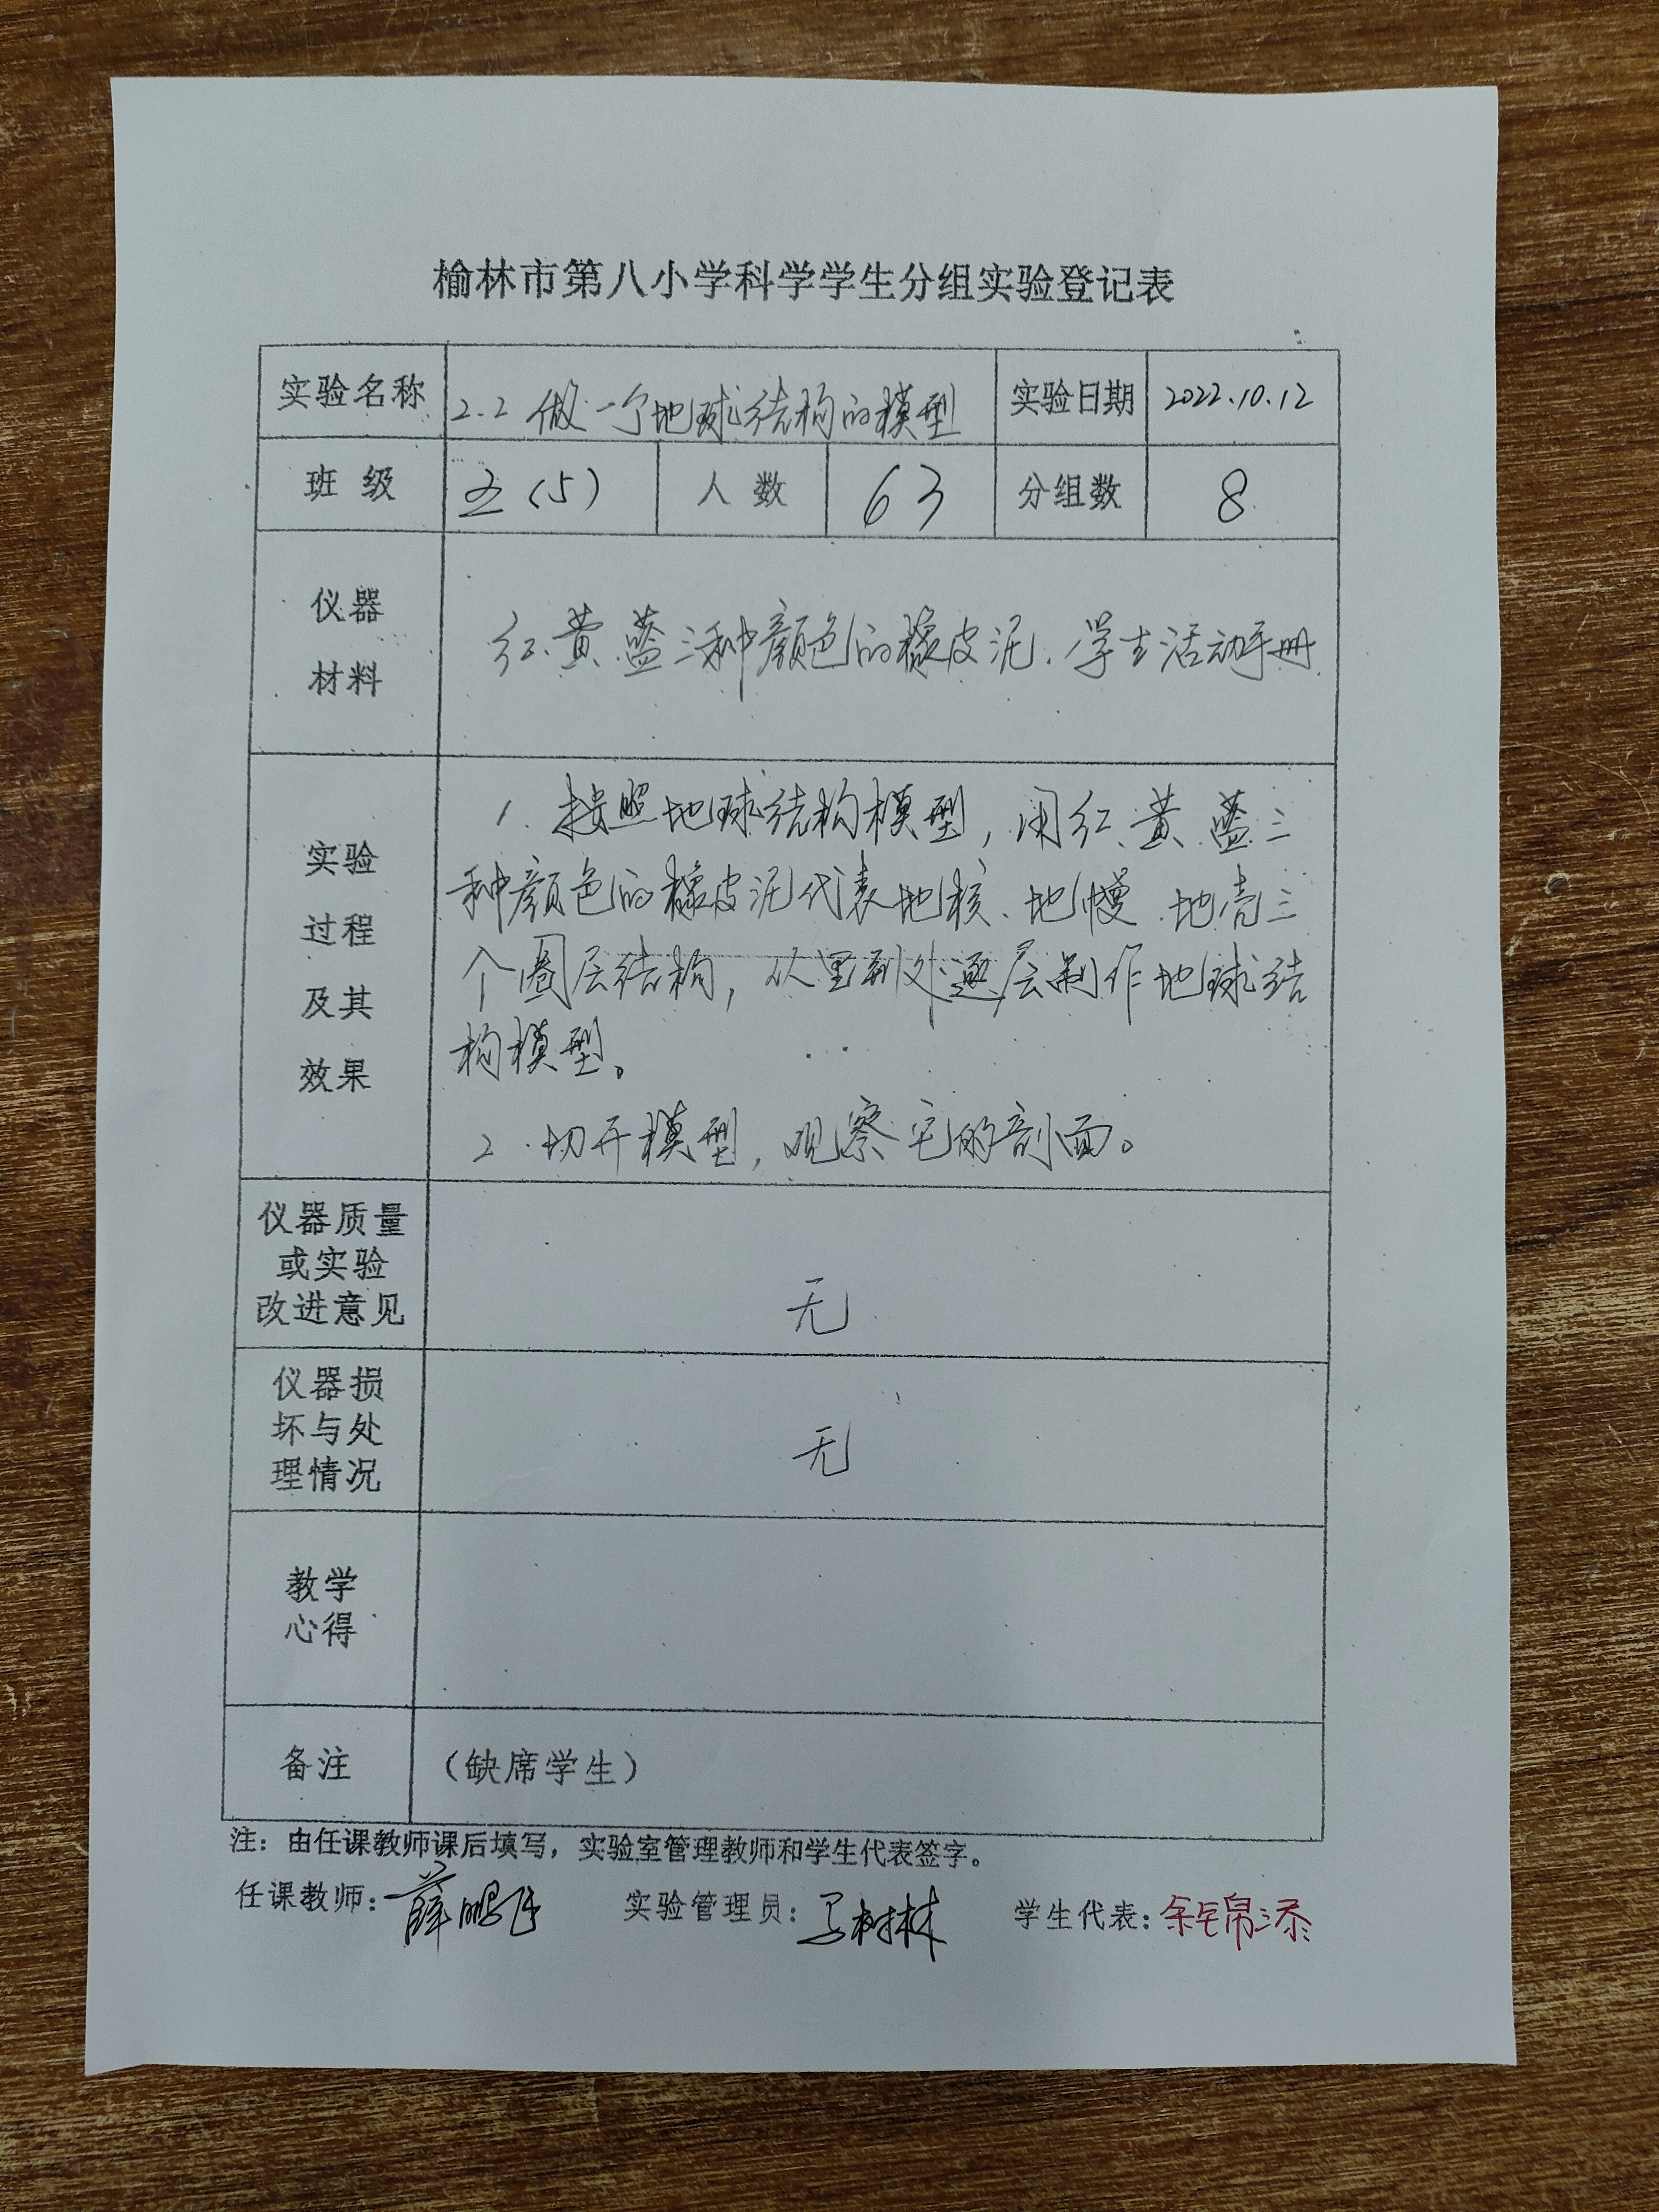 榆林市第八小学科学学生分组实验登记表
实验名称 2.2 做一个地球结构的模型 实验日期 2022.10.12
班 级 五(5) 人 数 63 分组数 8
仪器
材料
红、黄、蓝三种颜色的橡皮泥、学生活动手册
实验
过程
及其
效果
1. 按照地球结构模型，用红、黄、蓝三
种颜色的橡皮泥代表地核、地幔、地壳三
个圈层结构，从里到外逐层制作地球结
构模型。
2. 切开模型，观察它的剖面。
仪器质量
或实验
改进意见
无
仪器损
坏与处
理情况
无
教学
心得
备注 （缺席学生）
注：由任课教师课后填写，实验室管理教师和学生代表签字。
任课教师： 实验管理员：马树林 学生代表：余锦添